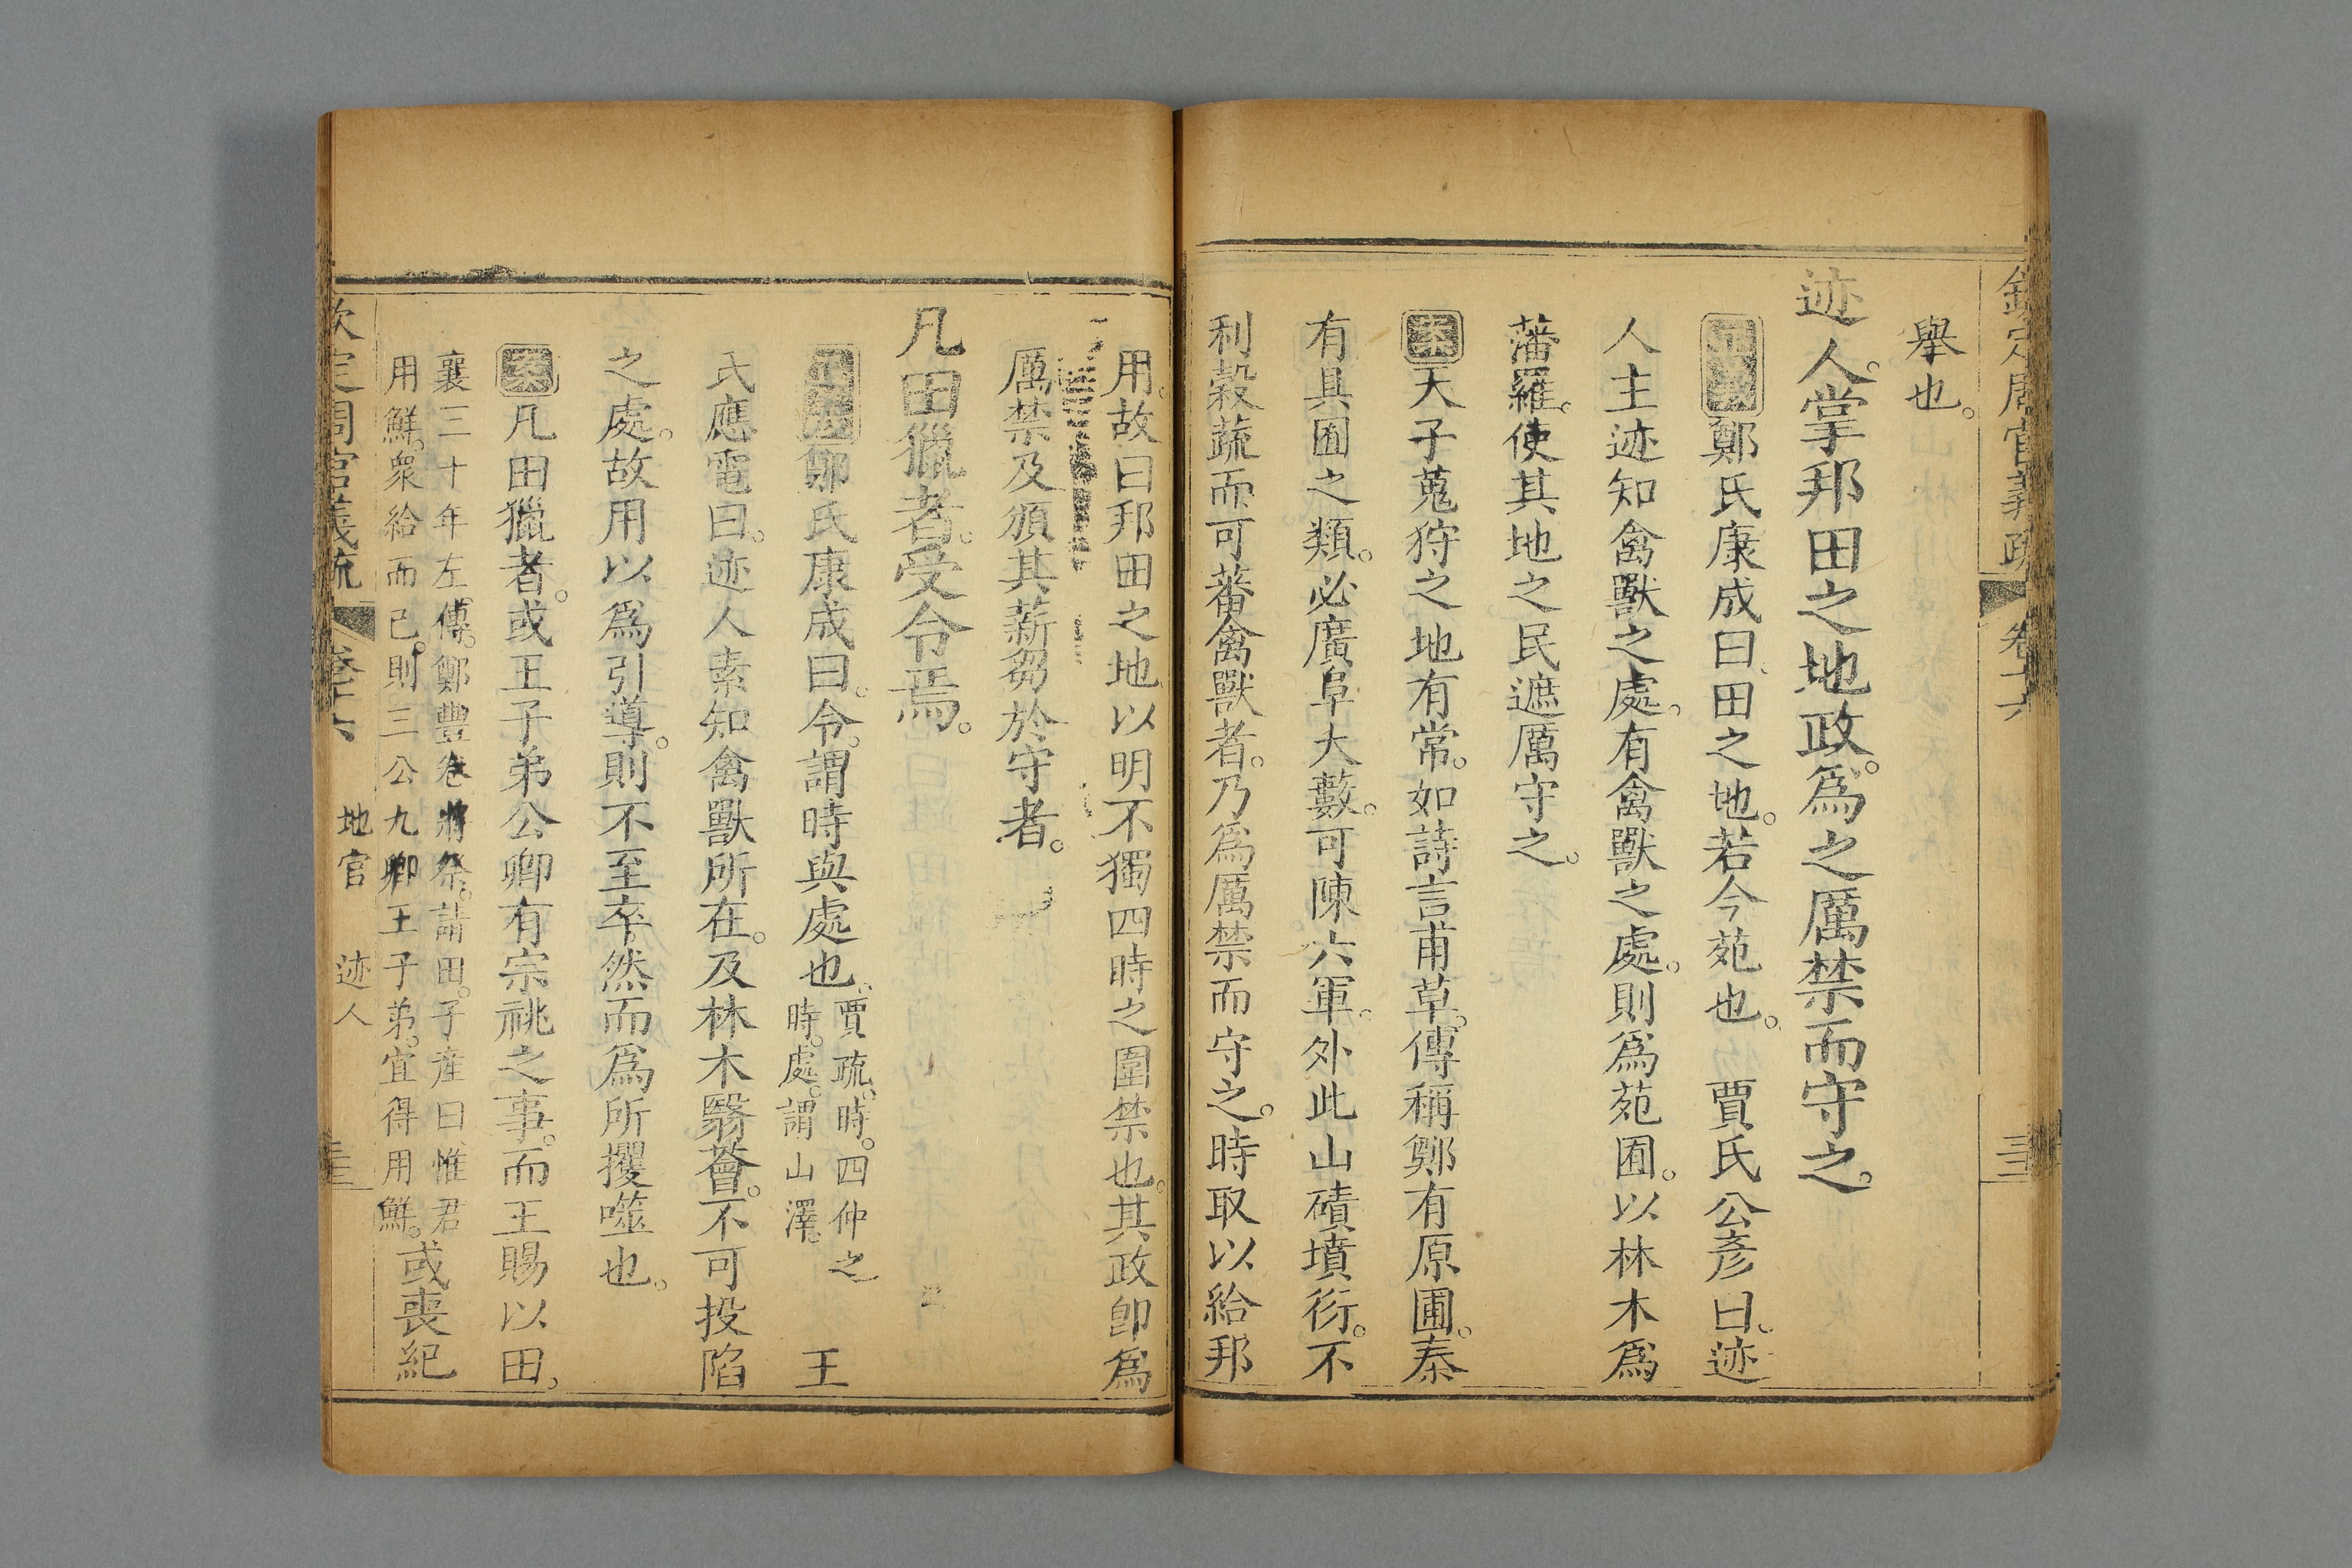 欽定周官義疏 卷十六
舉也。
迹人。掌邦田之地政。爲之厲禁而守之。
正義鄭氏康成曰、田之地。若今苑也。 賈氏公彥曰、迹
人主迹知禽獸之處。有禽獸之處。則爲苑囿。以林木爲
藩羅。使其地之民遮厲守之。
案天子蒐狩之地有常。如詩言甫草。傳稱鄭有原圃。秦
有具囿之類。必廣阜大藪。可陳六軍。外此山磧墳衍。不
利穀蔬而可蕃禽獸者。乃爲厲禁而守之。時取以給邦
用。故曰邦田之地以明不獨四時之圍禁也。其政卽爲
厲禁及頒其薪芻於守者。
凡田獵者。受令焉。
正義鄭氏康成曰。令。謂時與處也。賈疏、時。四仲之
時。處。謂山澤。 王
氏應電曰。迹人素知禽獸所在。及林木翳薈。不可投陷
之處。故用以爲引導。則不至卒然而爲所攫噬也。
案凡田獵者。或王子弟公卿有宗祧之事。而王賜以田。
襄三十年左傳。鄭豐卷將祭。請田。子產曰、惟君
用鮮。衆給而已。則三公九卿王子弟。宜得用鮮。或喪紀
欽定周官義疏 卷十六 地官 迹人